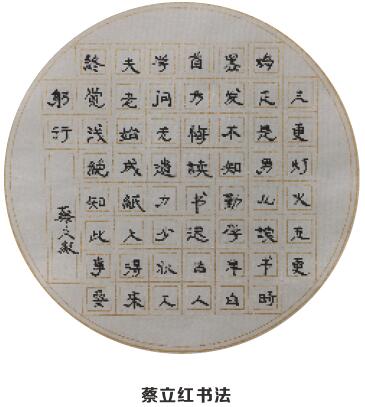 三更灯火五更
鸡正是男儿读书时
黑发不知勤学早白
首方悔读书迟古人
学问无遗力少壮工
夫老始成紙上得来
終觉浅絕知此事要
躬行
蔡立红书法